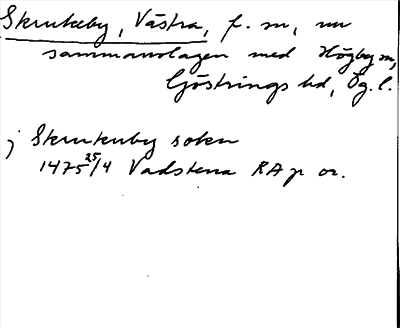 Skrukeby, Västra, f. sn, nu
sammanslagen med Högby sn,
Göstrings hd, Ög. l.
j Skrukenby soken
1475 25/4 Vadstena RA p or.